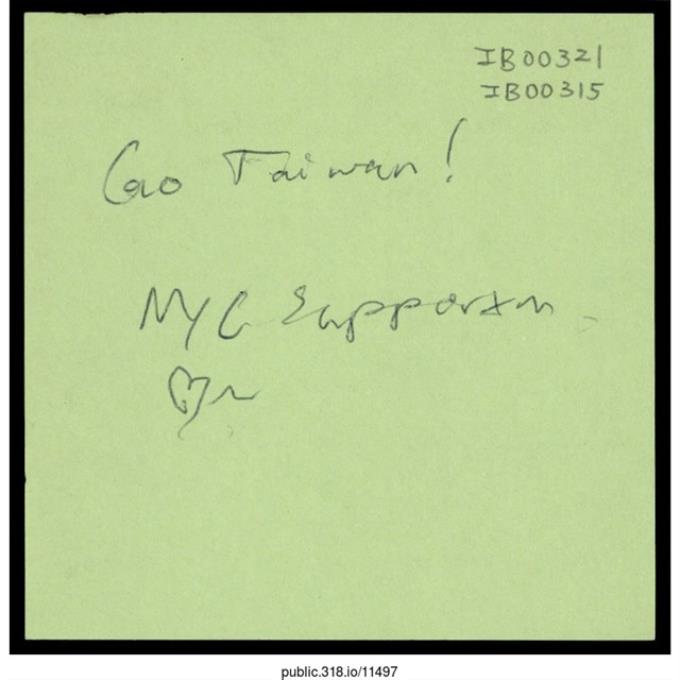 IB00321
IB00315
Go Taiwan!
NYC Supporter
public.318.io/11497